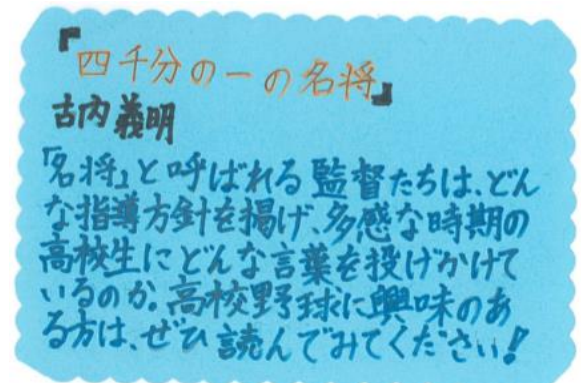 『四千分の一の名将』
古内義明
「名将」と呼ばれる監督たちは、どん
な指導方針を掲げ、多感な時期の
高校生にどんな言葉を投げかけて
いるのか。高校野球に興味のあ
る方は、ぜひ読んでみてください!